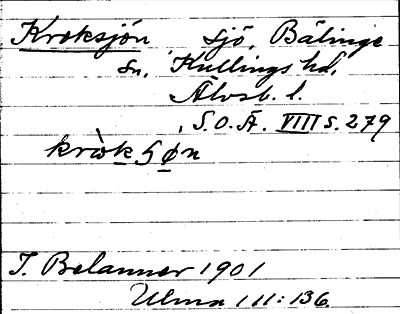 Kroksjön sjö, Bälinge
sn, Kullings hd,
Älvsb. l.
S.O.Ä. VIII s. 279
kròk ɧøn
I. Belanner 1901
Ulma 111:136.